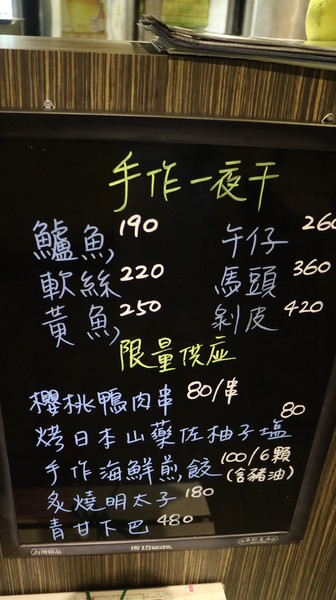 手作一夜干
鱸魚 190 午仔 260
軟絲 220 馬頭 360
黃魚 250 剝皮 420
限量供应
櫻桃鴨肉串 80/串
烤日本山藥佐柚子塩 80
手作海鮮煎餃 100/6顆
(含豬油)
炙燒明太子 180
青甘下巴 480
台灣精品